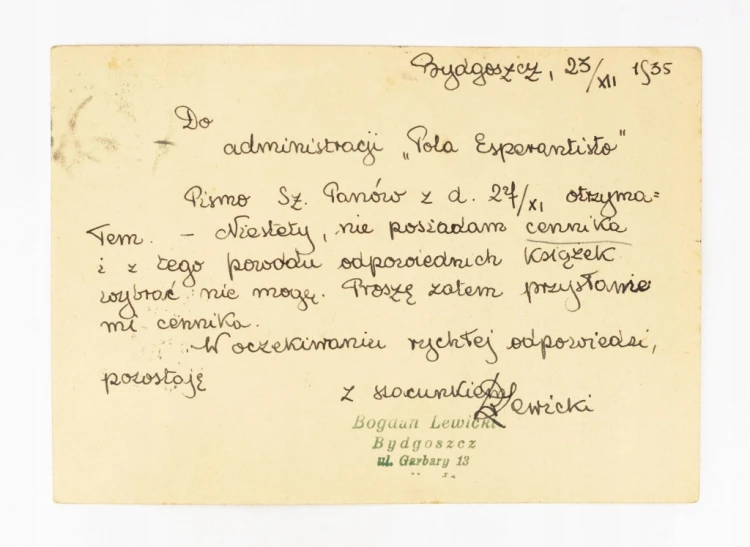 Bydgoszcz, 23/XII 1935
Do
administracji „Pola Esperantisto"
Pismo Sz. Panów z d. 27/XI otrzyma=
łem. – Niestety, nie posiadam cennika
i z tego powodu odpowiednich książek
wybrać nie mogę. Proszę zatem przysłanie
mi cennika.
W oczekiwaniu rychłej odpowiedzi,
pozostaję
z szacunkiem
BLewicki
Bogdan Lewicki
Bydgoszcz
ul. Garbary 13